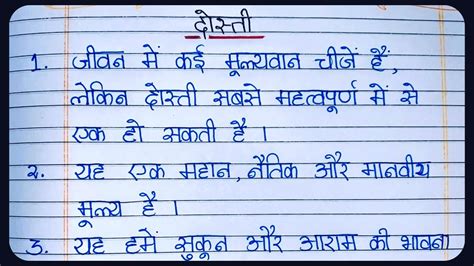 दोस्ती
1. जीवन में कई मूल्यवान चीजें हैं,
लेकिन दोस्ती सबसे महत्वपूर्ण में से
एक हो सकती है ।
2. यह एक महान, नैतिक और मानवीय
मूल्य है ।
3. यह हमें सुकून और आराम की भावना